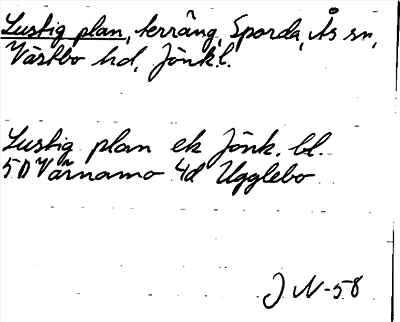 Lustig plan, terräng, Sporda, Ås sn,
Västbo hd, Jönk.l.
Lustig plan ek Jönk. bl.
5D Värnamo 4d Ugglebo
J N-58